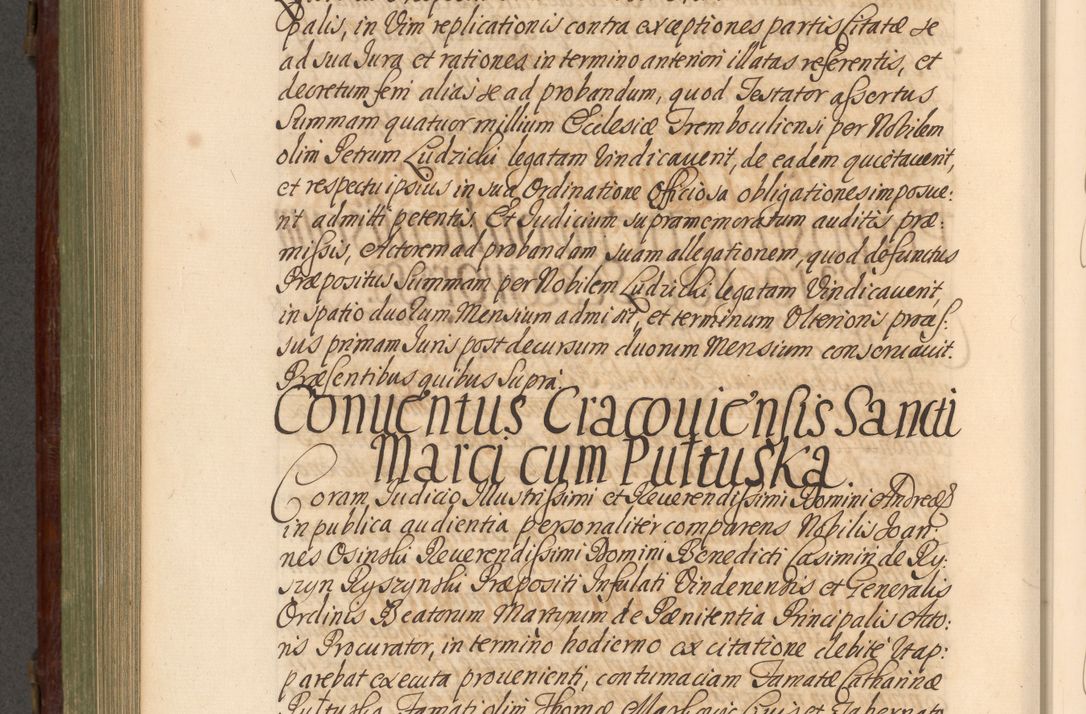 palis, in Vim replicationis contra exceptiones partis Citatæ se
ad sua Jura et rationes in termino anteriori illatas referentis, et
decretum feri alias se ad probandum, quod Testator assertus
Summam quatuor millium Ecclesiæ Trembouliensi per Nobilem
olim Petrum Ludzicki legatam Vindicauerit, de eadem quietauerit,
et respectu ipsius in sua Ordinatione Officiosa obligationes imposue:
rit admitti petentis. Et Judicium supramemoratum auditis præ:
missis, Actorem ad probandam suam allegationem, quod defunctus
Præpositus Summam per Nobilem Ludzicki legatam Vindicauerit,
in spatio duorum Mensium admisit, et terminum Ulterioris proces:
sus primam Juris post decursum duorum Mensium conseruauit.
Præsentibus quibus Supra.
Conuentus Cracouiensis Sancti
Marci cum Pułtuska.
Coram Judicio Illustrissimi et Reuerendissimi Domini Andreæ
in publica audientia personaliter comparens Nobilis Joan:
nes Osinski Reuerendissimi Domini Benedicti Casimiri de Ry:
szyn Ryszynski Præpositi Infulati Vindenensis et Generalis
Ordinis Beatorum Martyrum de Pænitentia Principalis Acto:
ris Procurator, in termino hodierno ex citatione debite Utap:
parebat executa prouenienti, contumaciam Famatæ Catharinæ
Pułtuska Famati olim Thomæ